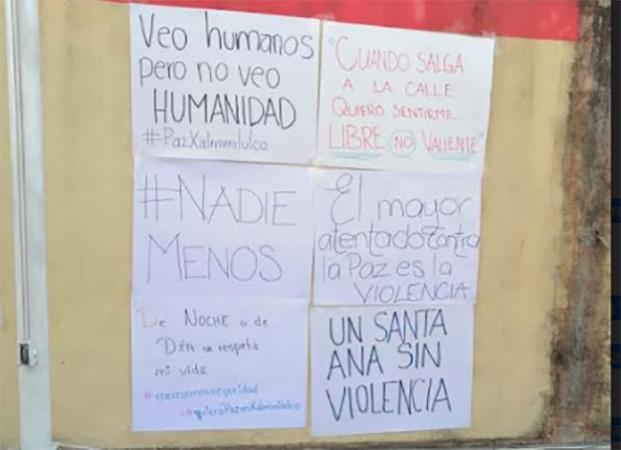 Veo humanos
pero no veo
HUMANIDAD
#PazXalmimilulco
"CUANDO SALGA
A LA CALLE
QUIERO SENTIRME
LIBRE NO VALIENTE"
#NADIE
MENOS
El mayor
atentado contra
la Paz es la
VIOLENCIA
De NOCHE o de
DíA se respeta
mi vida
#merecemosseguridad
UN SANTA
ANA SIN
VIOLENCIA